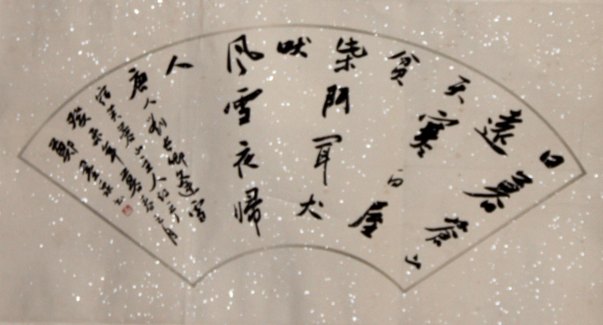 日暮蒼山
遠
天寒白屋
貧
柴門聞犬
吠
風雪夜歸
人
唐人劉長卿逢雪
宿芙蓉山主人
癸未年暮春
鄭